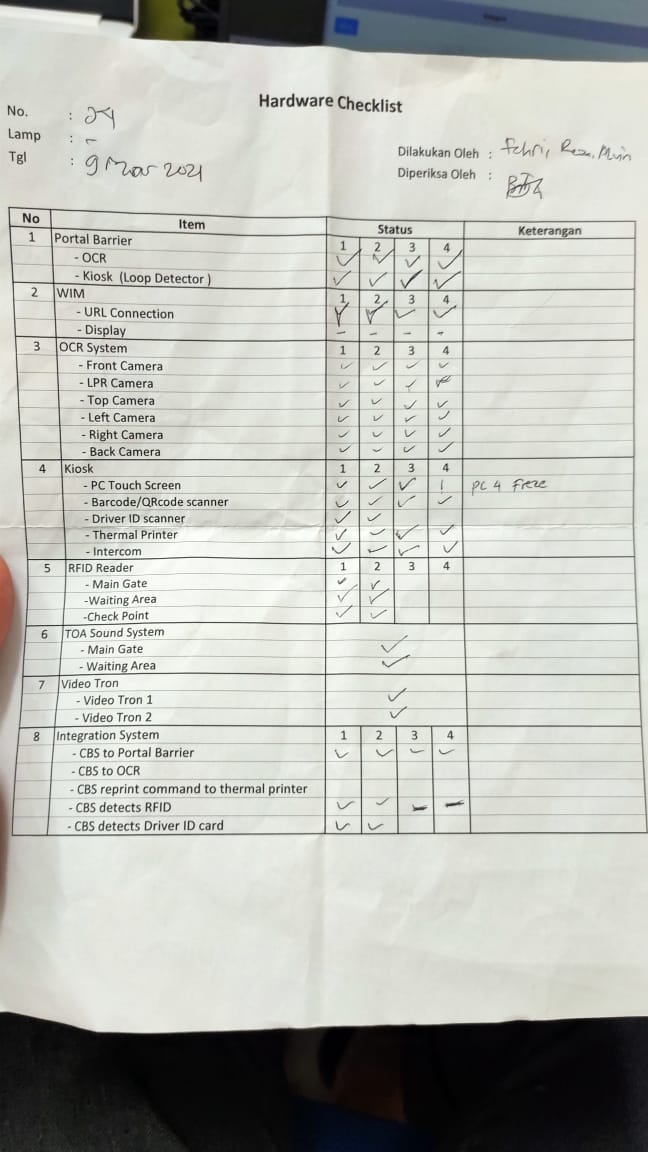 Hardware Checklist
No. :
Lamp : -
Tgl : 9 Mar 2021
Dilakukan Oleh : Fahri, Reza,
Diperiksa Oleh :
No Item Status Keterangan
1 Portal Barrier 1 2 3 4
- OCR ✓ ✓ ✓ ✓
- Kiosk (Loop Detector) ✓ ✓ ✓ ✓
2 WIM 1 2 3 4
- URL Connection ✓ ✓ ✓ ✓
- Display - - - -
3 OCR System 1 2 3 4
- Front Camera ✓ ✓ ✓ ✓
- LPR Camera ✓ ✓ ✓ ✓
- Top Camera ✓ ✓ ✓ ✓
- Left Camera ✓ ✓ ✓ ✓
- Right Camera ✓ ✓ ✓ ✓
- Back Camera ✓ ✓ ✓ ✓
4 Kiosk 1 2 3 4
- PC Touch Screen ✓ ✓ ✓ ! PC 4 Freze
- Barcode/QRcode scanner ✓ ✓ ✓ ✓
- Driver ID scanner ✓ ✓
- Thermal Printer ✓ ✓ ✓ ✓
- Intercom ✓ ✓ ✓ ✓
5 RFID Reader 1 2 3 4
- Main Gate ✓ ✓
-Waiting Area ✓ ✓
-Check Point ✓ ✓
6 TOA Sound System
- Main Gate ✓
- Waiting Area ✓
7 Video Tron
- Video Tron 1 ✓
- Video Tron 2 ✓
8 Integration System 1 2 3 4
- CBS to Portal Barrier ✓ ✓ ✓ ✓
- CBS to OCR
- CBS reprint command to thermal printer
- CBS detects RFID ✓ ✓ - -
- CBS detects Driver ID card ✓ ✓